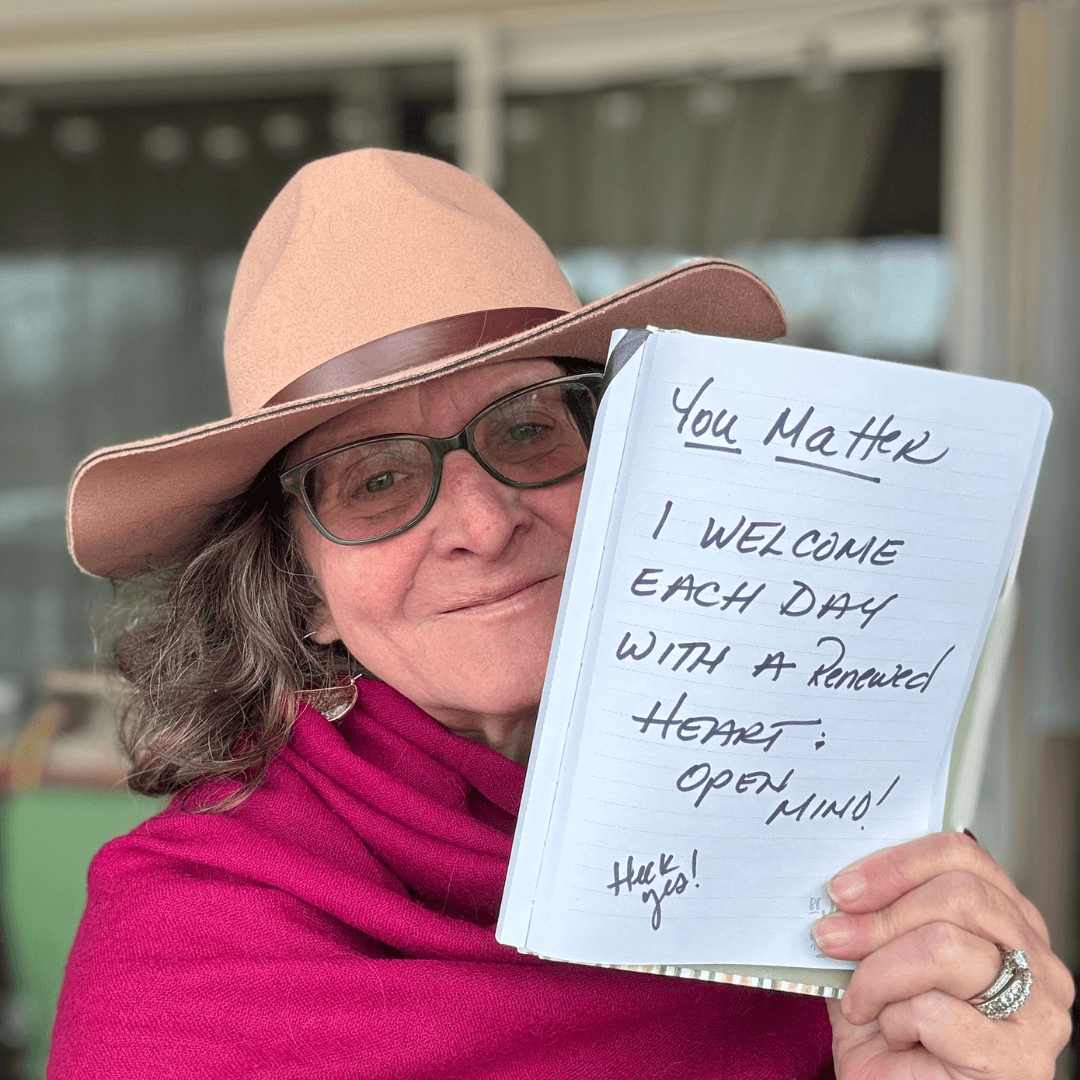 You Matter
I WELCOME
EACH DAY
WITH A Renewed
HEART:
OPEN
MIND!
Heck
yes!
BE